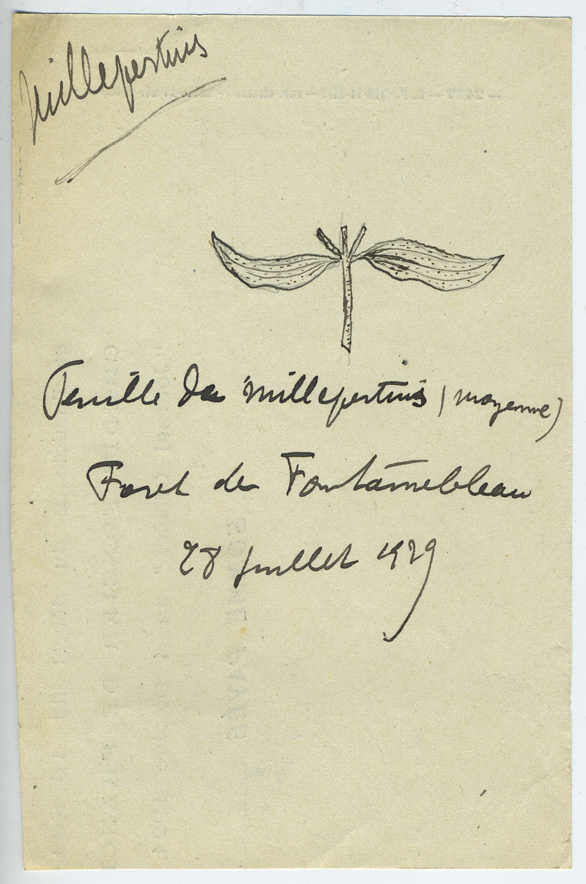 Millepertuis
Feuille de millepertuis (moyenne)
Foret de Fontainebleau
28 juillet 1929